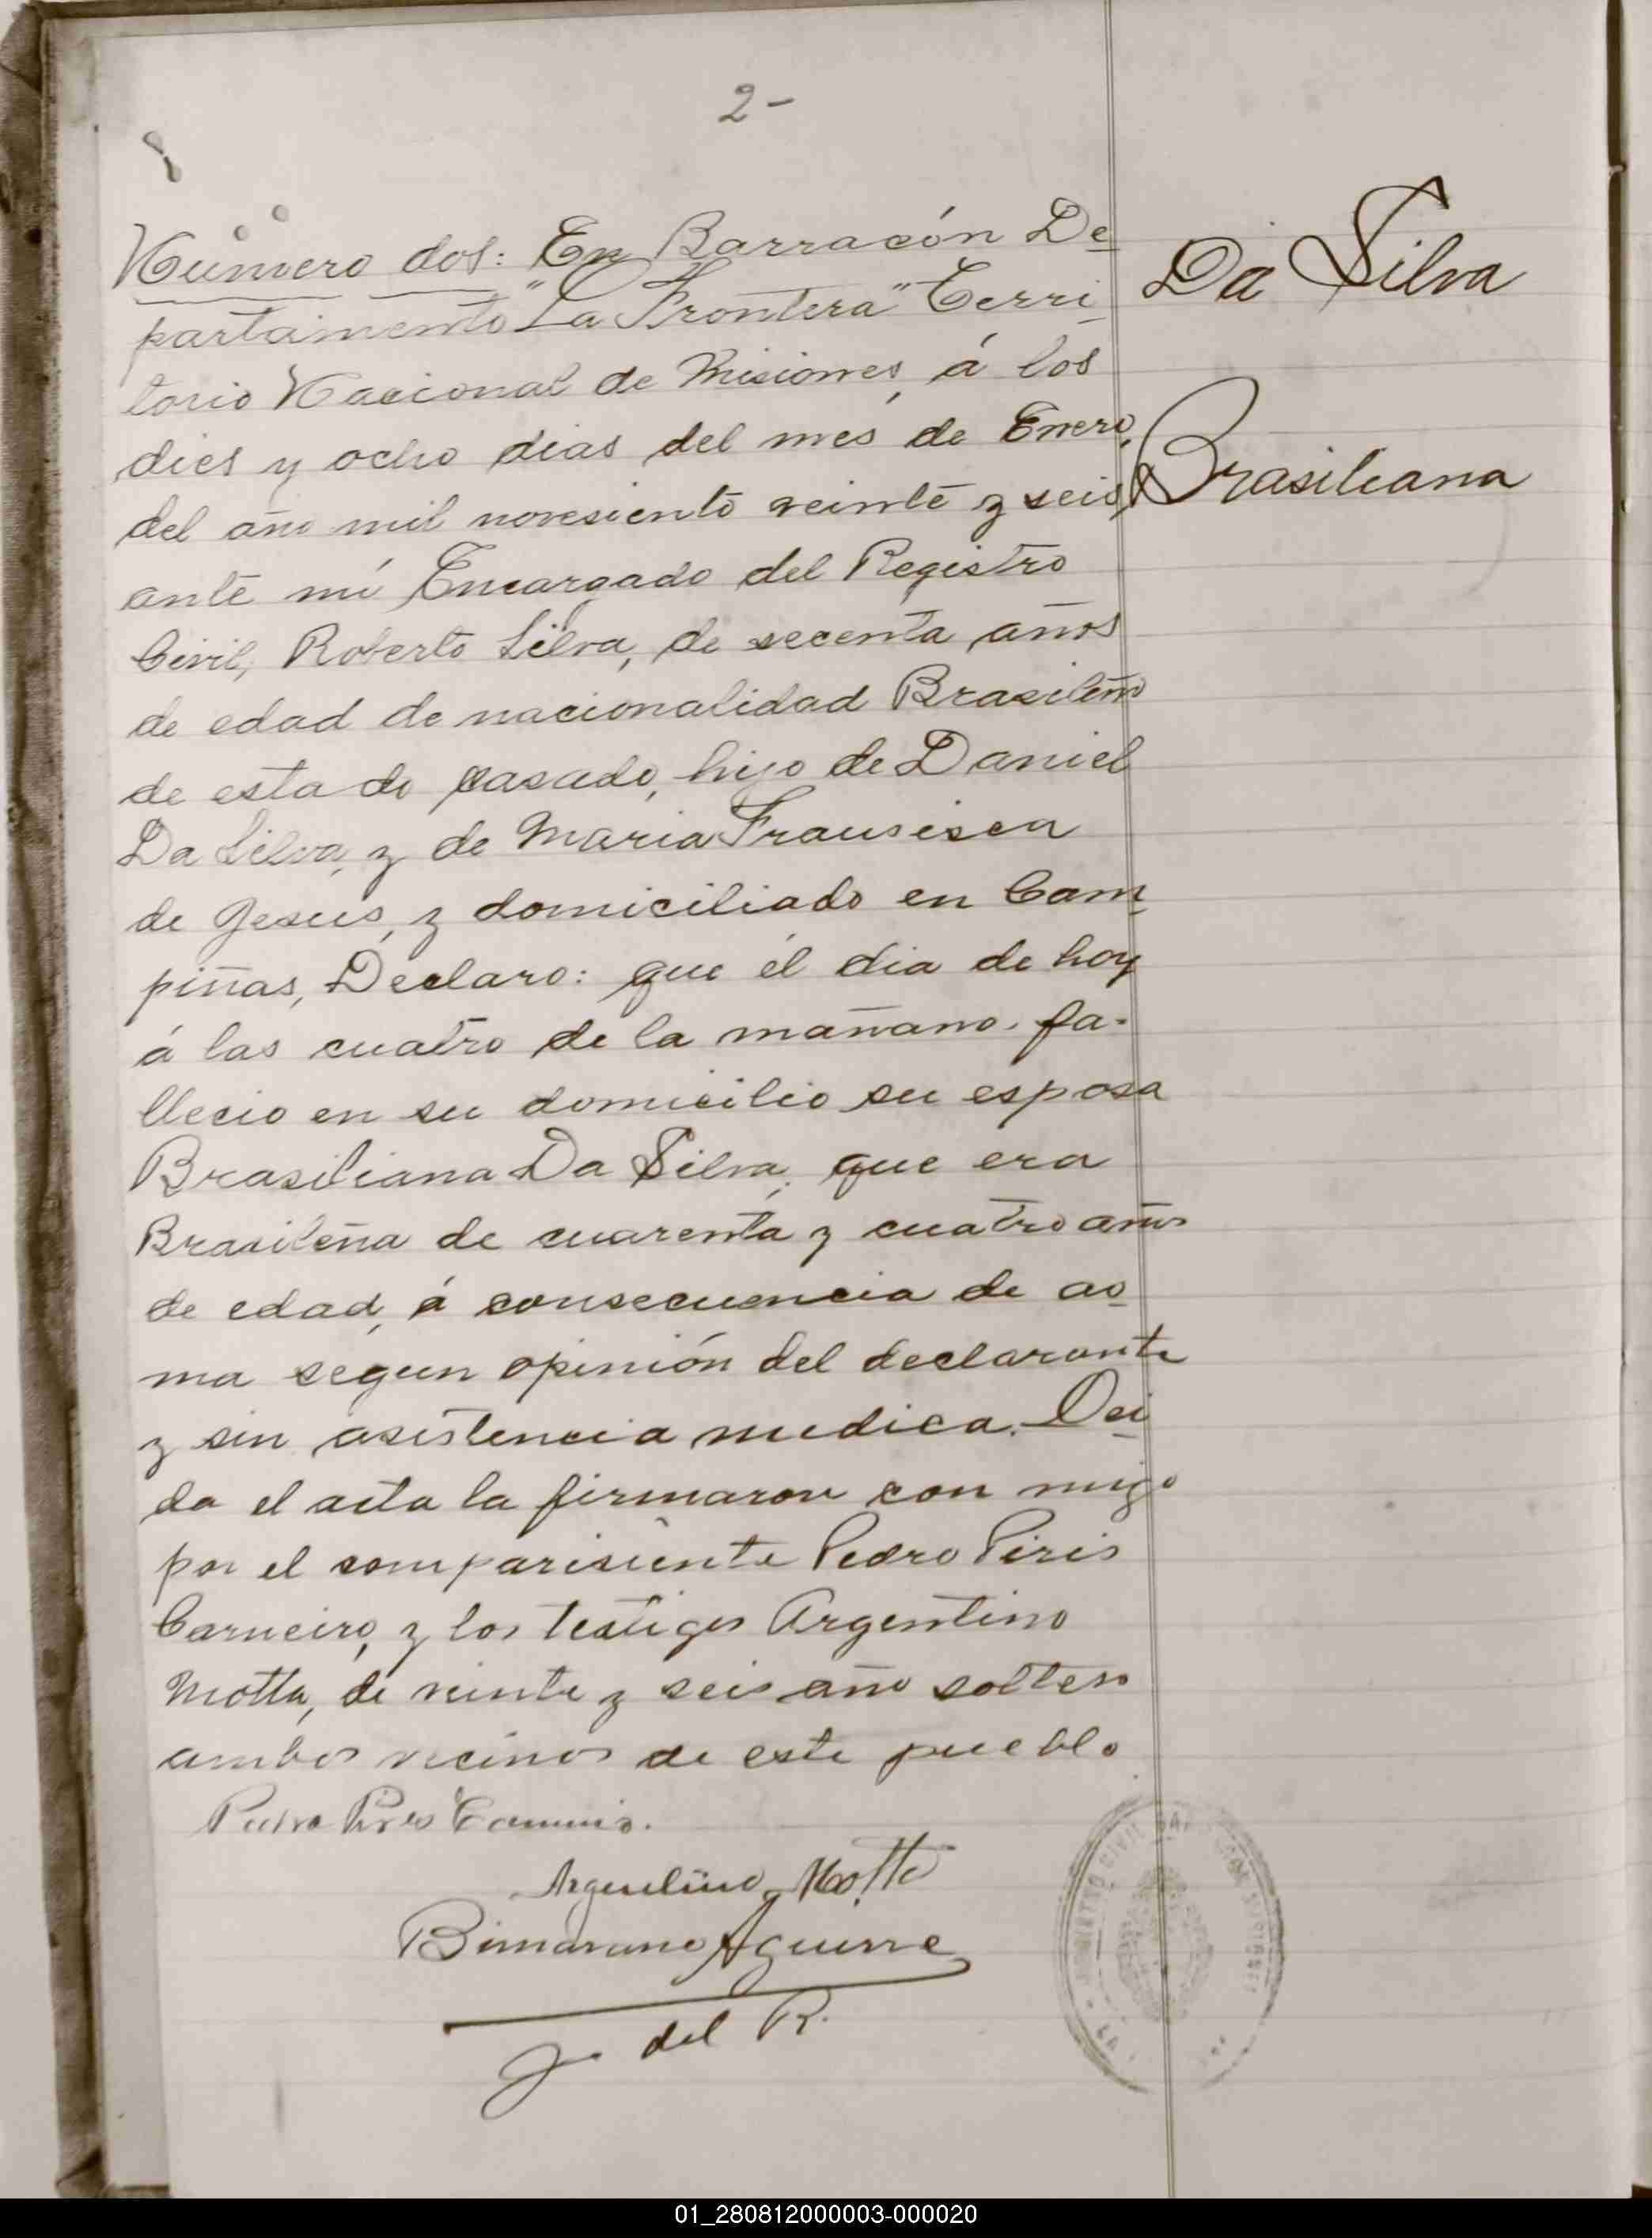 2-
Número dos: En Barracón De
partamento "La Frontera" Terri
torio Nacional de Misiones, á los
dies y ocho dias del mes de Enero,
del año mil novesiento veinte y seis,
ante mi Encargado del Registro
Civil, Roberto Silva, de secenta años
de edad de nacionalidad Brasileño
de estado casado, hijo de Daniel
Da Silva, y de Maria Fransisca
de Jesus, y domiciliado en Cam
piñas, Declaro: que él dia de hoy
á las cuatro de la mañana. fa-
llecio en su domicilio su esposa
Brasiliana Da Silva, que era
Brasileña de cuarenta y cuatro años
de edad, á consecuencia de as
ma segun opinión del declarante
y sin asistencia medica. Lei
da el acta la firmaron con migo
por el comparisiente Pedro Piris
Carneiro, y los testigos Argentino
Motta, de veinte y seis año soltero
ambos vecinos de este pueblo
Da Silva
Brasiliana
Pedro Pires
Argentino Motta
Aguirre
J del R.
01_280812000003-000020